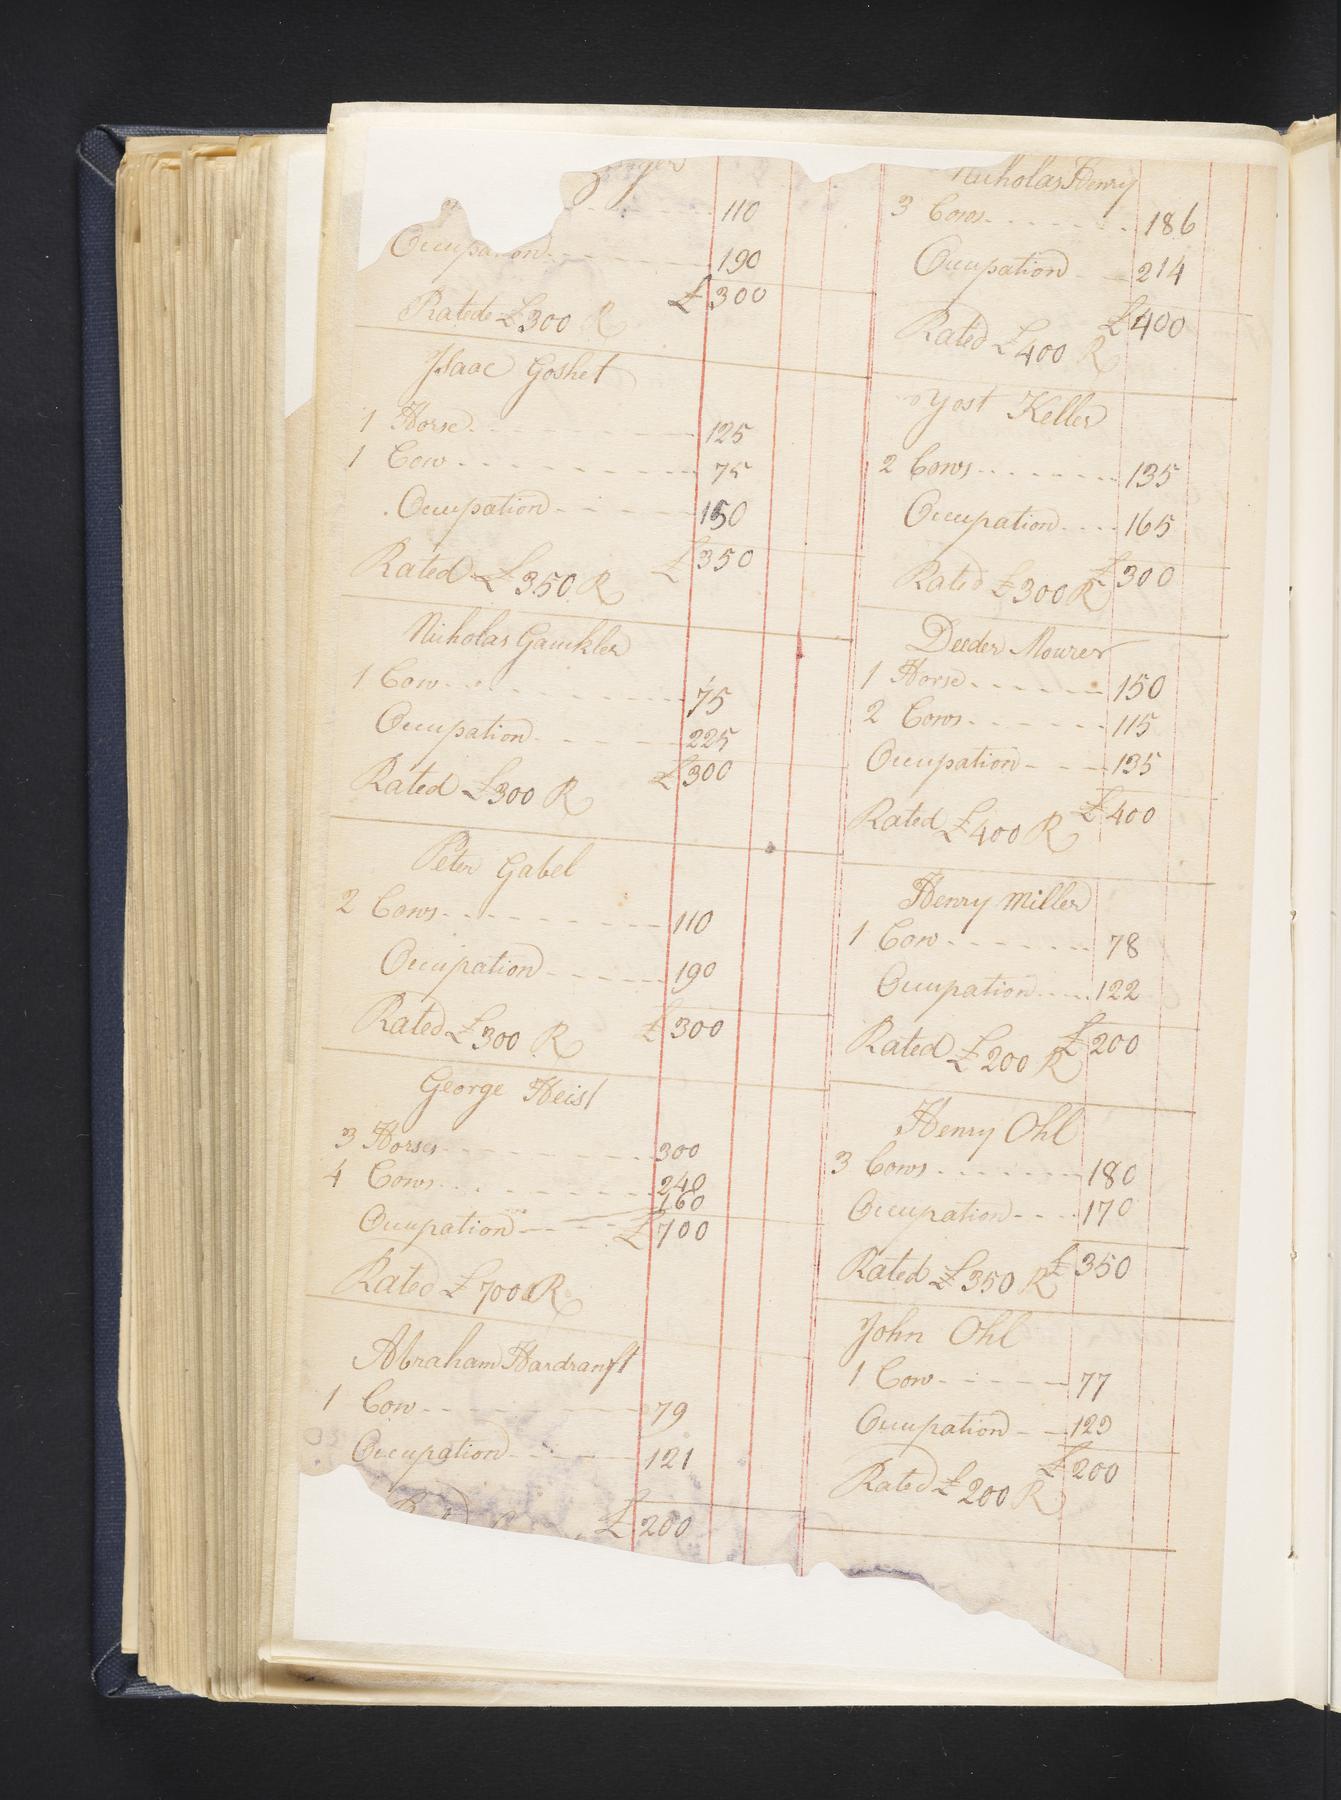 110
Occupation 190
£ 300
Rated £300 R
Isaac Goshet
1 Horse 125
1 Cow 75
Occupation 150
£ 350
Rated £350 R
Nicholas Gaukler
1 Cow 75
Occupation 225
£ 300
Rated £300 R
Peter Gabel
2 Cows 110
Occupation 190
£ 300
Rated £300 R
George Heist
3 Horses 300
4 Cows 240
160
Occupation £ 700
Rated £700 R
Abraham Hardranft
1 Cow 79
Occupation 121
£ 200
Nicholas Henry
3 Cows 186
Occupation 214
£ 400
Rated £400 R
Yost Keller
2 Cows 135
Occupation 165
£ 300
Rated £300 R
Deeder Mourer
1 Horse 150
2 Cows 115
Occupation 135
£ 400
Rated £400 R
Henry Miller
1 Cow 78
Occupation 122
£ 200
Rated £200 R
Henry Ohl
3 Cows 180
Occupation 170
£ 350
Rated £350 R
John Ohl
1 Cow 77
Occupation 123
£ 200
Rated £200 R